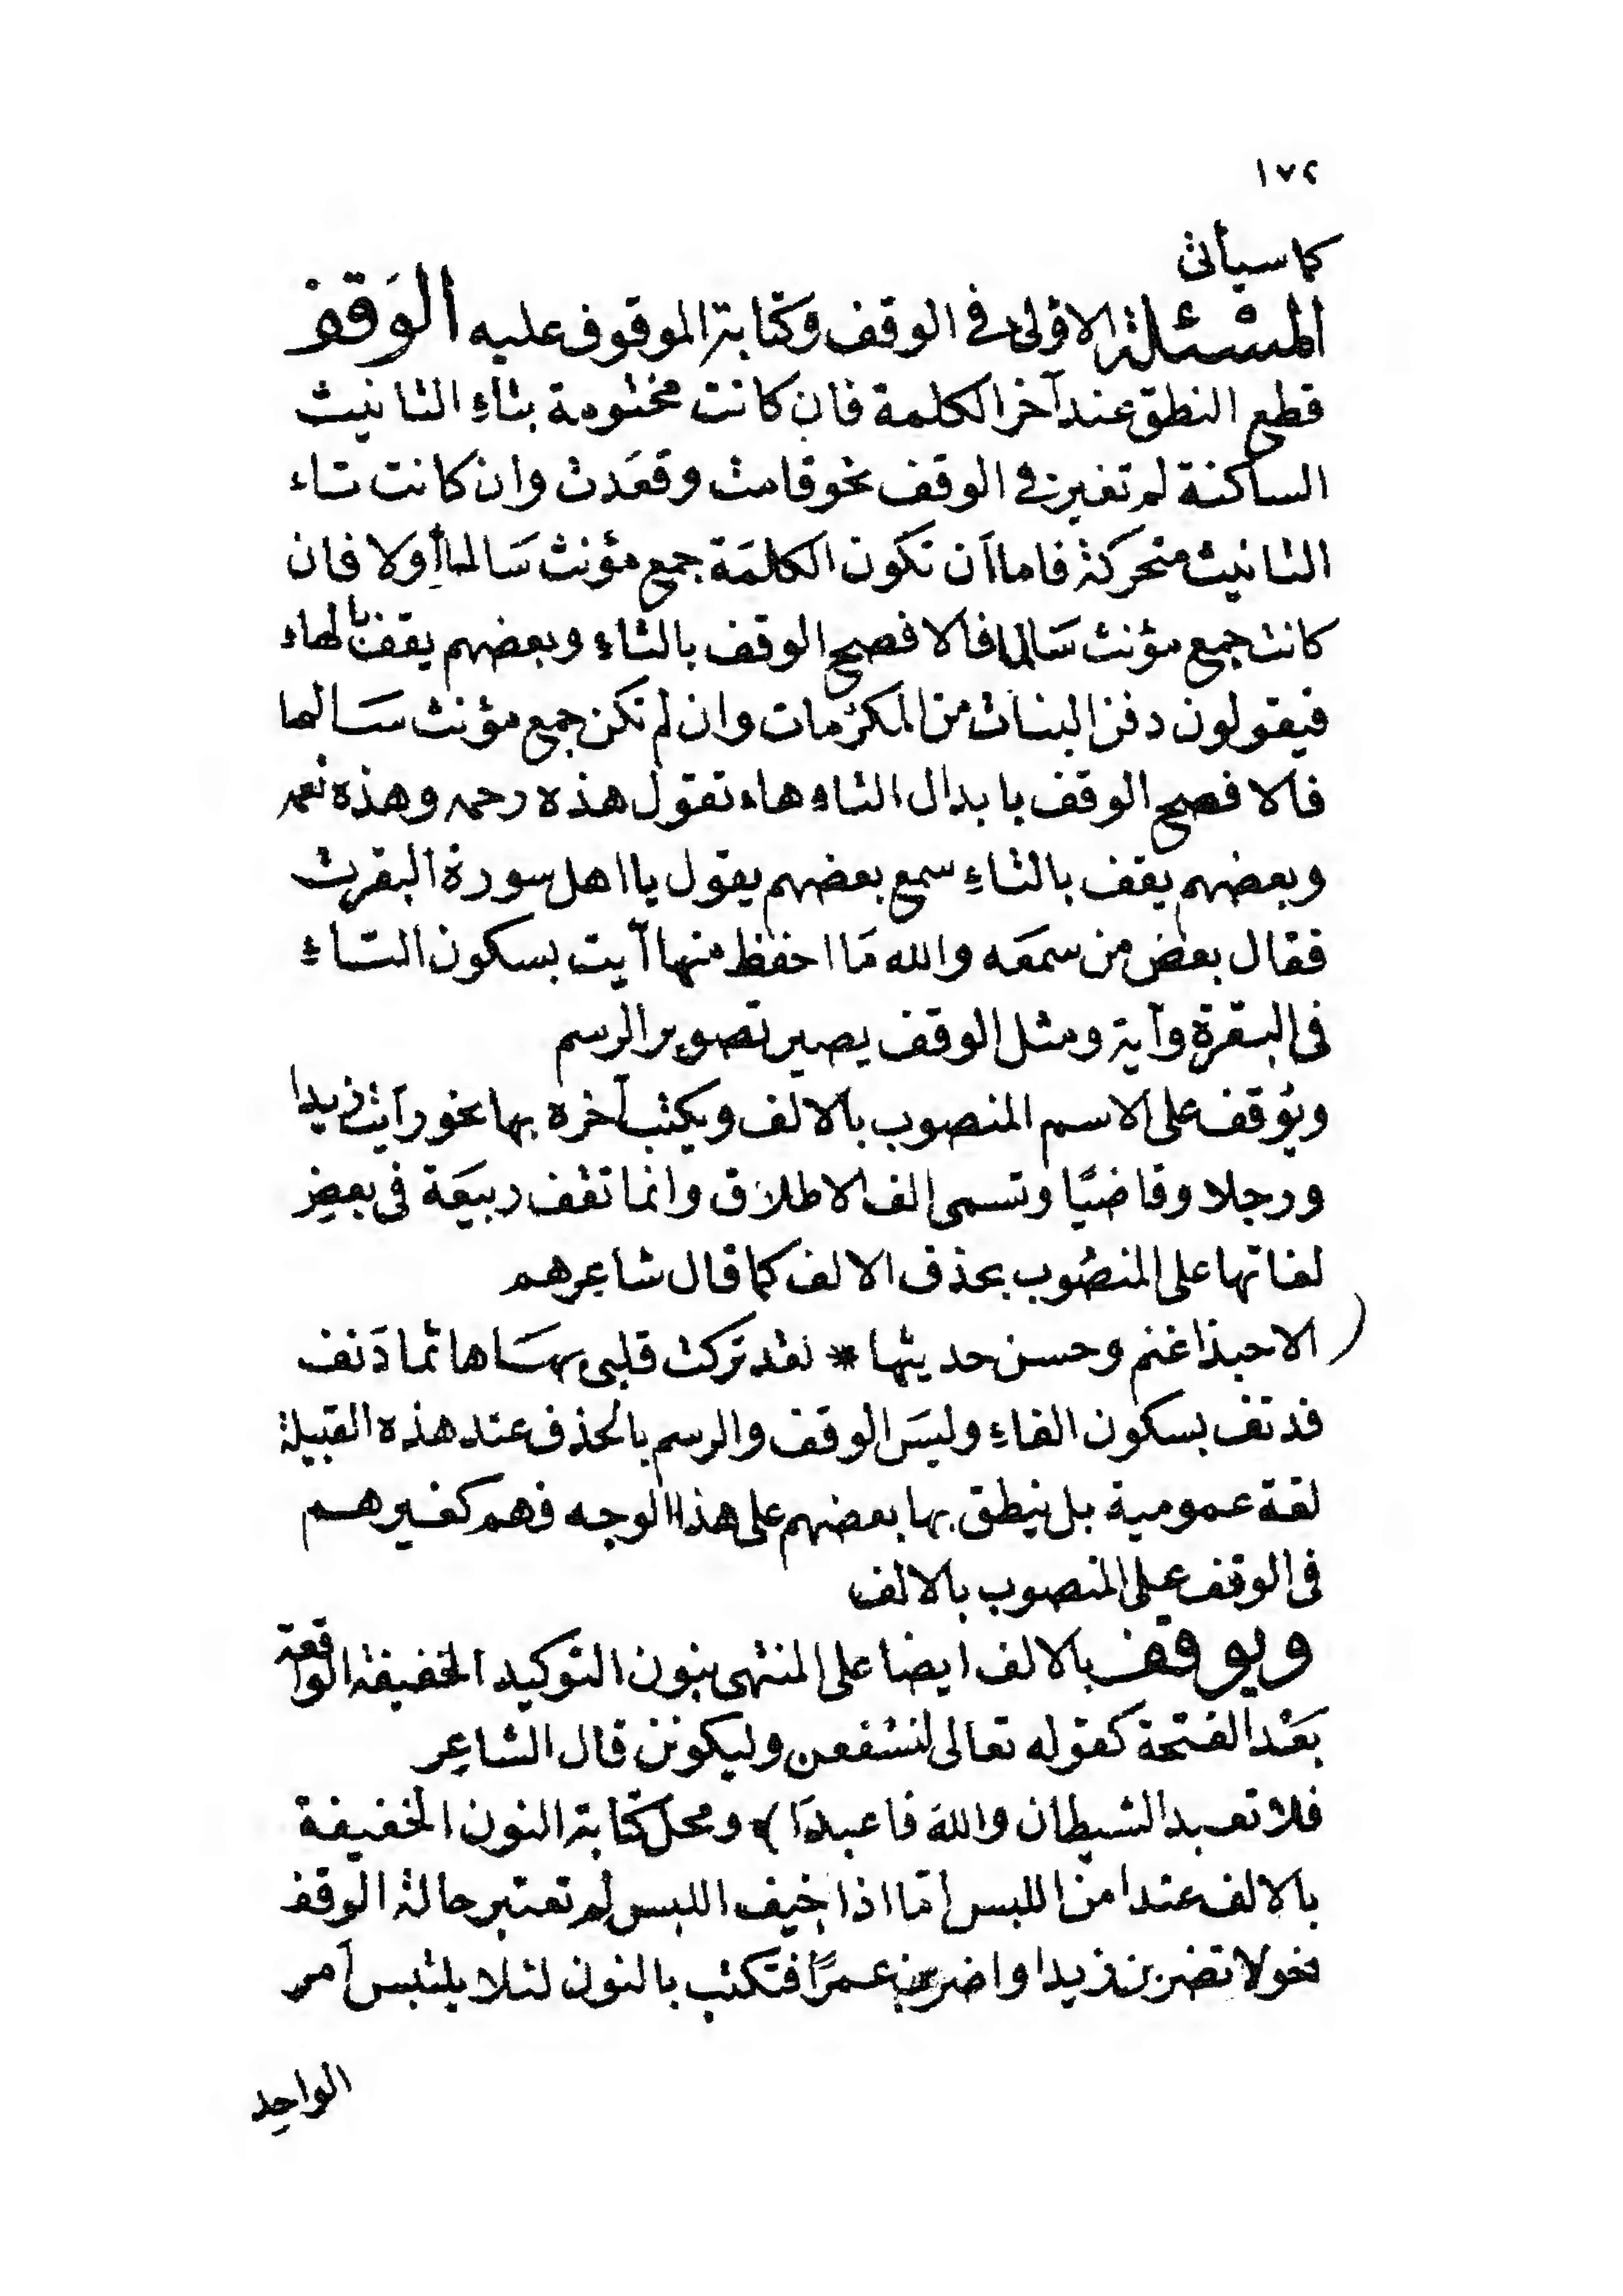 ١٧٢
كما سيأتى
المسئلة الاولى فى الوقف وكتابة الموقوف عليه الوَقف
قطع النطق عند آخر الكلمة فان كانت مختومة بتاءِ التانيث
الساكنة لم تغير فى الوقف نحو قامت وقعَدت وان كانت تاء
التانيث متحركة فاما أن تكون الكلمَة جمع مؤنث سَالما أولا فان
كانت جمع مؤنث سَالما فالافصح الوقف بالتاءِ وبعضهم يقف بالهاء
فيقولون دفن البناه من المكرُمات وان لم تكن جمع مؤنث سَالما
فالافصح الوقف بابدال التاء هاء تقول هذه رحمه وهذه نعمه
وبعضهم يقف بالتاءِ سمع بعضهم يقول يا اهل سورة البقرت
فقال بعض من سمعَه والله مَا احفظ منها آيت بسكون التاءِ
فى البقرة وآية ومثل الوقف يصير تصوير الرسم
ويُوقف على الاسم المنصوب بالالف ويكتب آخره بها نحو رأيت زيدا
ورجلا وقاضيًا وتسمى الف الاطلاق وانما تقف ربيعَة فى بعضِ
لغاتها على المنصُوب بحذف الالف كما قال شاعِرهم
الا حبذا غنم وحسن حديثها * لقد تركت قلبى بهَا هائما دَنف
فدنف بسكون الفاءِ وليسَ الوقف والرسم بالحذف عند هذه القبيلة
لغة عمومية بل ينطق بها بعضهم على هذا الوجه فهم كغيرهم
فى الوقف على المنصوب بالالف
ويوقف بالالف ايضا على المنتهى بنون التوكيد الخفيفة الواقعة
بَعْد الفتحة كقوله تعالى لنسفعن وليكونن قال الشاعِر
فلا تعبد الشيطان واللهَ فاعبدَا ) ومحل كتابة النون الخفيفة
بالالف عند امن اللبس امّا اذا خِيف اللبس لم تعتبر حالة الوقف
نحو لا تضربن زيدا واضربن عمرًا فتكتب بالنون لئلا يلتبس أمر
الواحِد